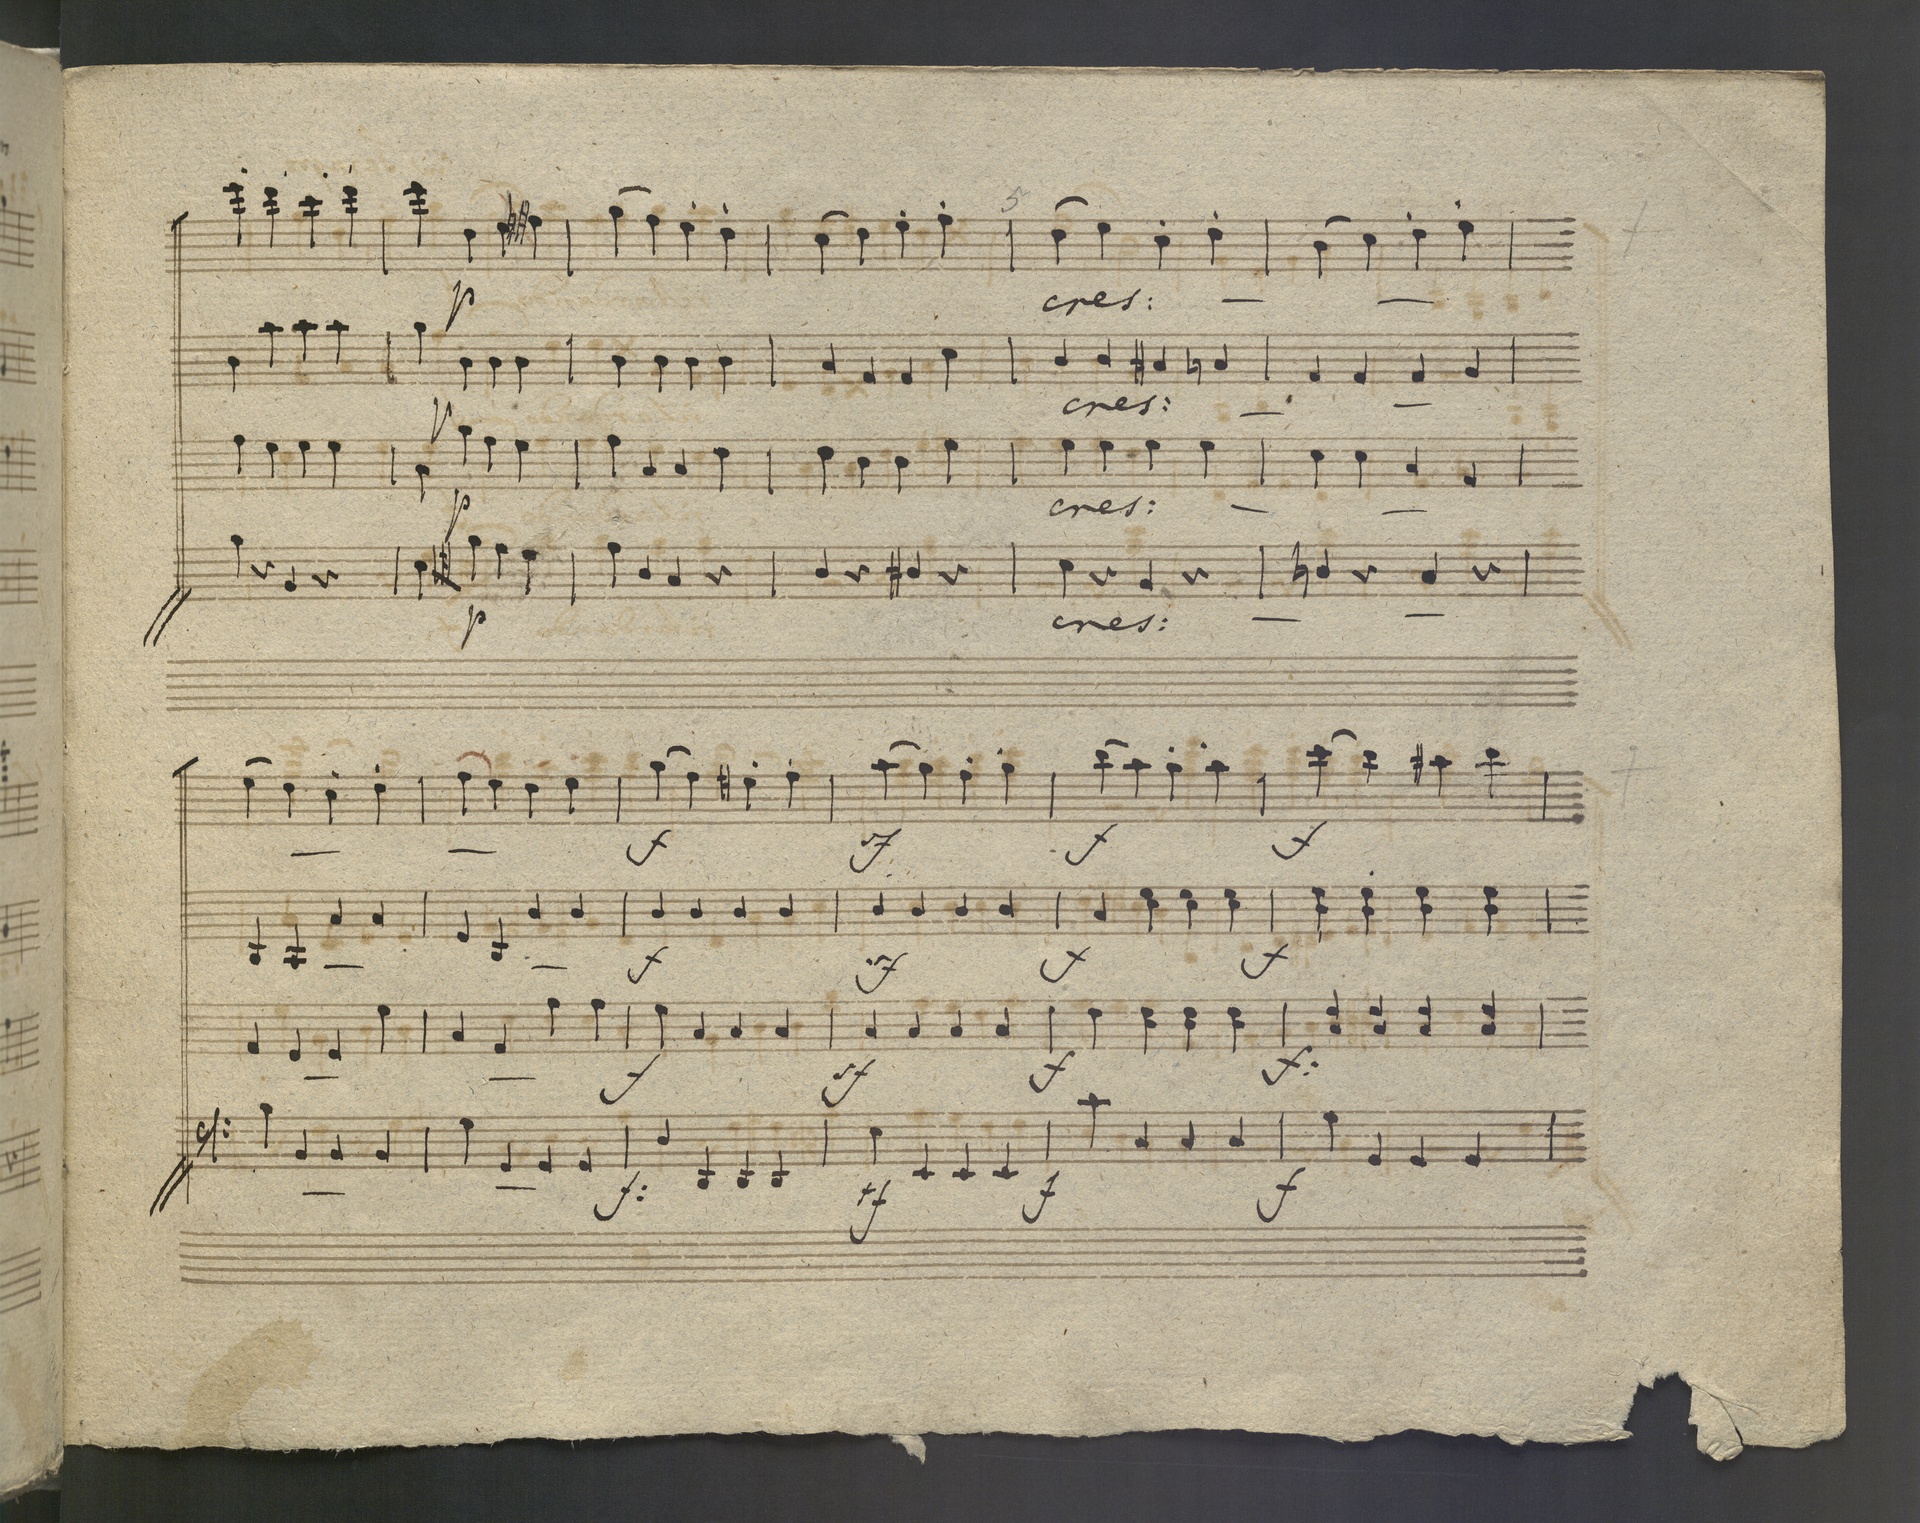 5
p
cres: — —
p
cres: — —
p
cres: — —
p
cres: — —
— — f sf f f
— — f sf f f
— — f sf f f:
— — f: sf f f